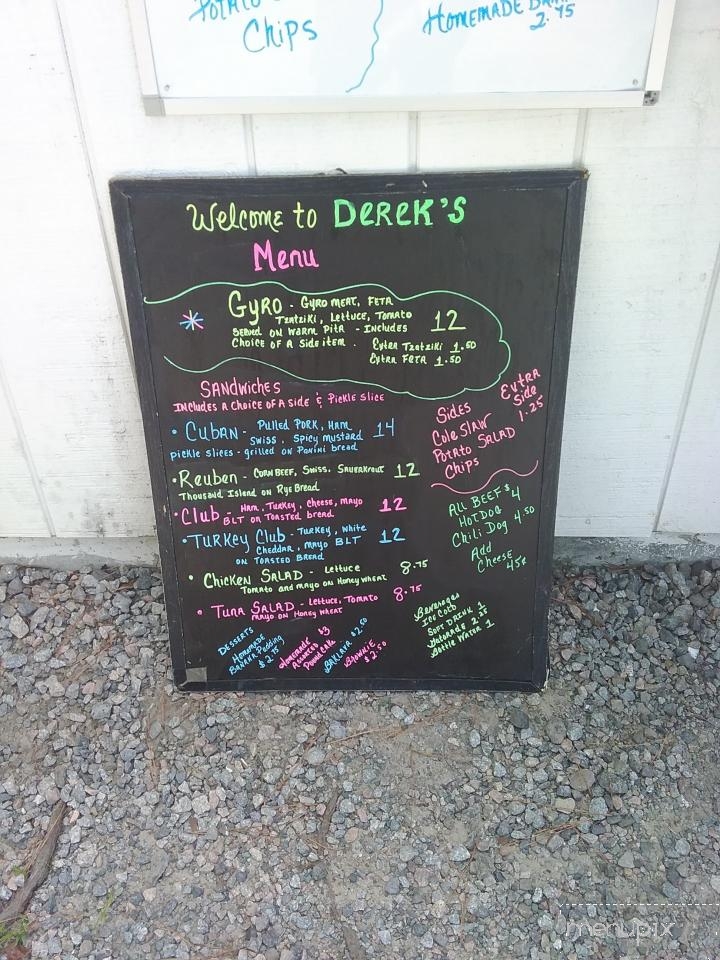 Potato
Chips
Homemade
2.95
Welcome to Derek's
Menu
Gyro - Gyro meat, Feta
Tzatziki, Lettuce, Tomato
Served on warm pita - Includes
Choice of a side item.
12
Extra Tzatziki 1.50
Extra Feta 1.50
Sandwiches
Includes a choice of a side & Pickle slice
• Cuban - Pulled Pork, Ham, 14
Swiss, Spicy mustard
pickle slices - grilled on Panini bread
• Reuben - Corn Beef, Swiss, Sauerkrout 12
Thousand Island on Rye Bread
• Club - Ham, Turkey, Cheese, mayo 12
BLT on Toasted bread
• Turkey Club - Turkey, white 12
Cheddar, mayo BLT
on Toasted Bread
• Chicken Salad - Lettuce 8.75
Tomato and mayo on Honey wheat
• Tuna Salad - Lettuce, Tomato 8.75
mayo on Honey wheat
Sides
Cole Slaw
Potato Salad
Chips
Extra
Side
1.25
All Beef $4
Hot Dog
Chili Dog 4.50
Add
Cheese
45¢
Desserts
Homemade
Banana Pudding
$2.75
Homemade $3
Pound Cake
Baklava $2.50
Brownie
$2.50
Beverages
Ice Cold
Soft Drink 1
Gatorade 2.25
Bottle Water 1
menupix